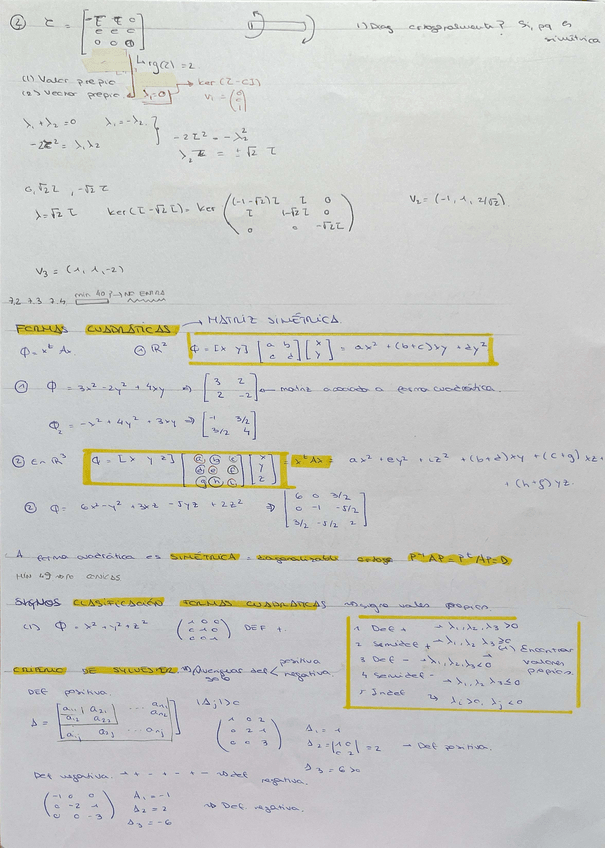 ② τ = [-τ τ 0
1) Diag ortogonalmente? Sí, pq es simétrica
rg(τ) = 2
(1) Valor propio
(2) Vector propio λ₁=0 → ker(τ-0I)
V₁ = (0 0 1)
λ₁+λ₂=0 λ₁=-λ₂
-2τ² = λ₁λ₂
-2τ² = -λ₂²
λ₂ = ±√2 τ
0, √2τ, -√2τ
λ=√2τ ker(τ-√2τ) = ker ((-1-√2)τ τ 0
τ 1-√2τ 0
0 0 -√2τ)
V₂ = (-1, 1, 2/√2)
V₃ = (1, 1, -2)
7.2 7.3 7.4 min 40 → NO ENTRA
FORMAS CUADRÁTICAS → MATRIZ SIMÉTRICA
Φ = xᵗAx ① ℝ² Φ = [x y] [a b / c d] [x / y] = ax² + (b+c)xy + dy²
① Φ = 3x²-2y²+4xy ⇒ [3 2 / 2 -2] ← matriz asociada a forma cuadrática.
Φ₂ = -x²+4y²+3xy ⇒ [-1 3/2 / 3/2 4]
② En ℝ³ Φ = [x y z] [a b c / d e f / g h i] [x / y / z] = xᵗAx = ax² + ey² + iz² + (b+d)xy + (c+g)xz + (h+f)yz.
② Φ = 6x²-y² + 3xz - 5yz + 2z² ⇒ [6 0 3/2 / 0 -1 -5/2 / 3/2 -5/2 2]
A forma cuadrática es SIMÉTRICA = diagonalizable ortogo P⁻¹AP = PᵗAP = D
MIN 49 CÓNICAS
SIGNOS CLASIFICACIÓN FORMAS CUADRÁTICAS → signo valores propios.
(1) Φ = x²+y²+z² (1 0 0 / 0 1 0 / 0 0 1) DEF +
1 Def + → λ₁, λ₂, λ₃ >0
2 Semidef + → λ₁, λ₂, λ₃ ≥0
3 Def - → λ₁, λ₂, λ₃<0
4 Semidef - → λ₁, λ₂, λ₃≤0
5 Indef → λᵢ>0, λⱼ<0
(1) Encontrar valores propios.
CRITERIO DE SYLVESTER → Averiguar solo def < positiva negativa.
DEF positiva.
Δ = [a₁₁ a₂₁ ... aₙ₁
a₁₂ a₂₂ aₙ₂
a₁ⱼ a₂ⱼ ... aₙⱼ]
|Δⱼ|>0
(1 0 2 / 0 2 1 / 0 0 3)
Δ₁ = 1
Δ₂ = |1 0 / 0 2| = 2 → Def positiva.
Δ₃ = 6>0
Def negativa. - + - + - ⇒ def negativa.
(-1 0 0 / 0 -2 1 / 0 0 -3)
Δ₁ = -1
Δ₂ = 2 ⇒ Def. negativa.
Δ₃ = -6